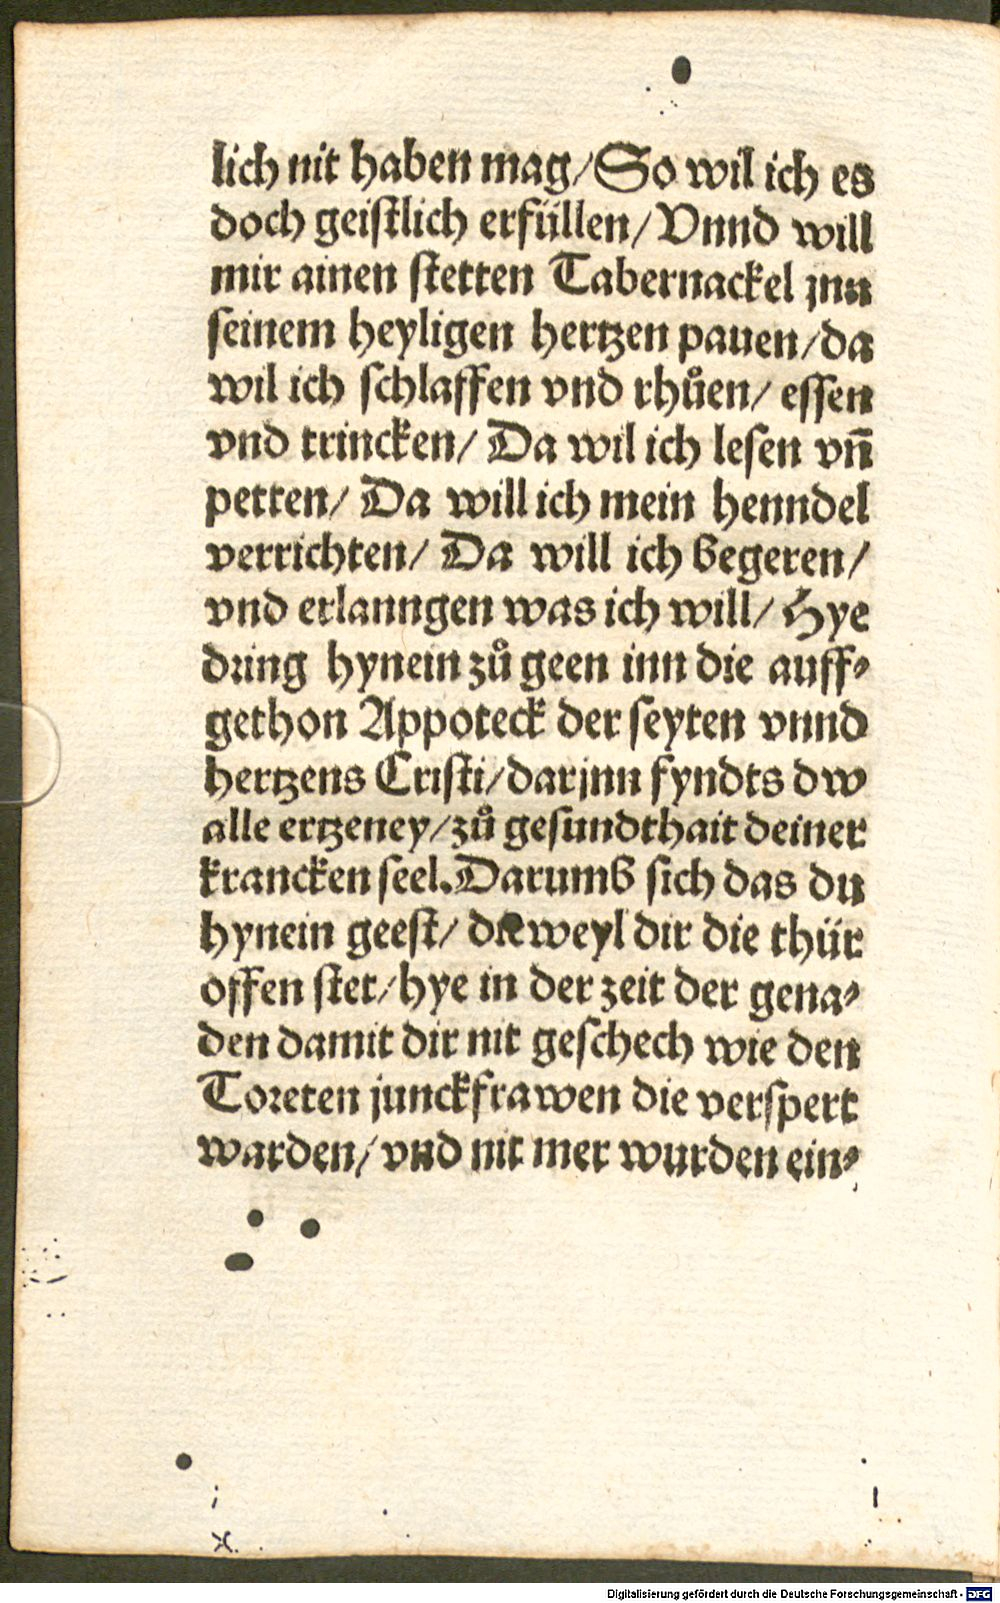 lich nit haben mag/ So wil ich es
doch geistlich erfüllen/ Vnnd will
mir ainen stetten Tabernackel jnn
seinem heyligen hertzen pauen/ da
wil ich schlaffen vnd rhůen/ essen
vnd trincken/ Da wil ich lesen vn̄
petten/ Da will ich mein henndel
verrichten/ Da will ich begeren/
vnd erlanngen was ich will/ Hye
dring hynein zů geen inn die auff⸗
gethon Appoteck der seyten vnnd
hertzens Cristi/ darjnn fyndts dw
alle ertzeney/ zů gesundthait deiner
krancken seel. Darumb sich das du
hynein geest/ dieweyl dir die thür
offen stet/ hye in der zeit der gena⸗
den damit dir nit geschech wie den
Toreten junckfrawen die verspert
warden/ vnd nit mer wurden ein⸗
Digitalisierung gefördert durch die Deutsche Forschungsgemeinschaft - DFG